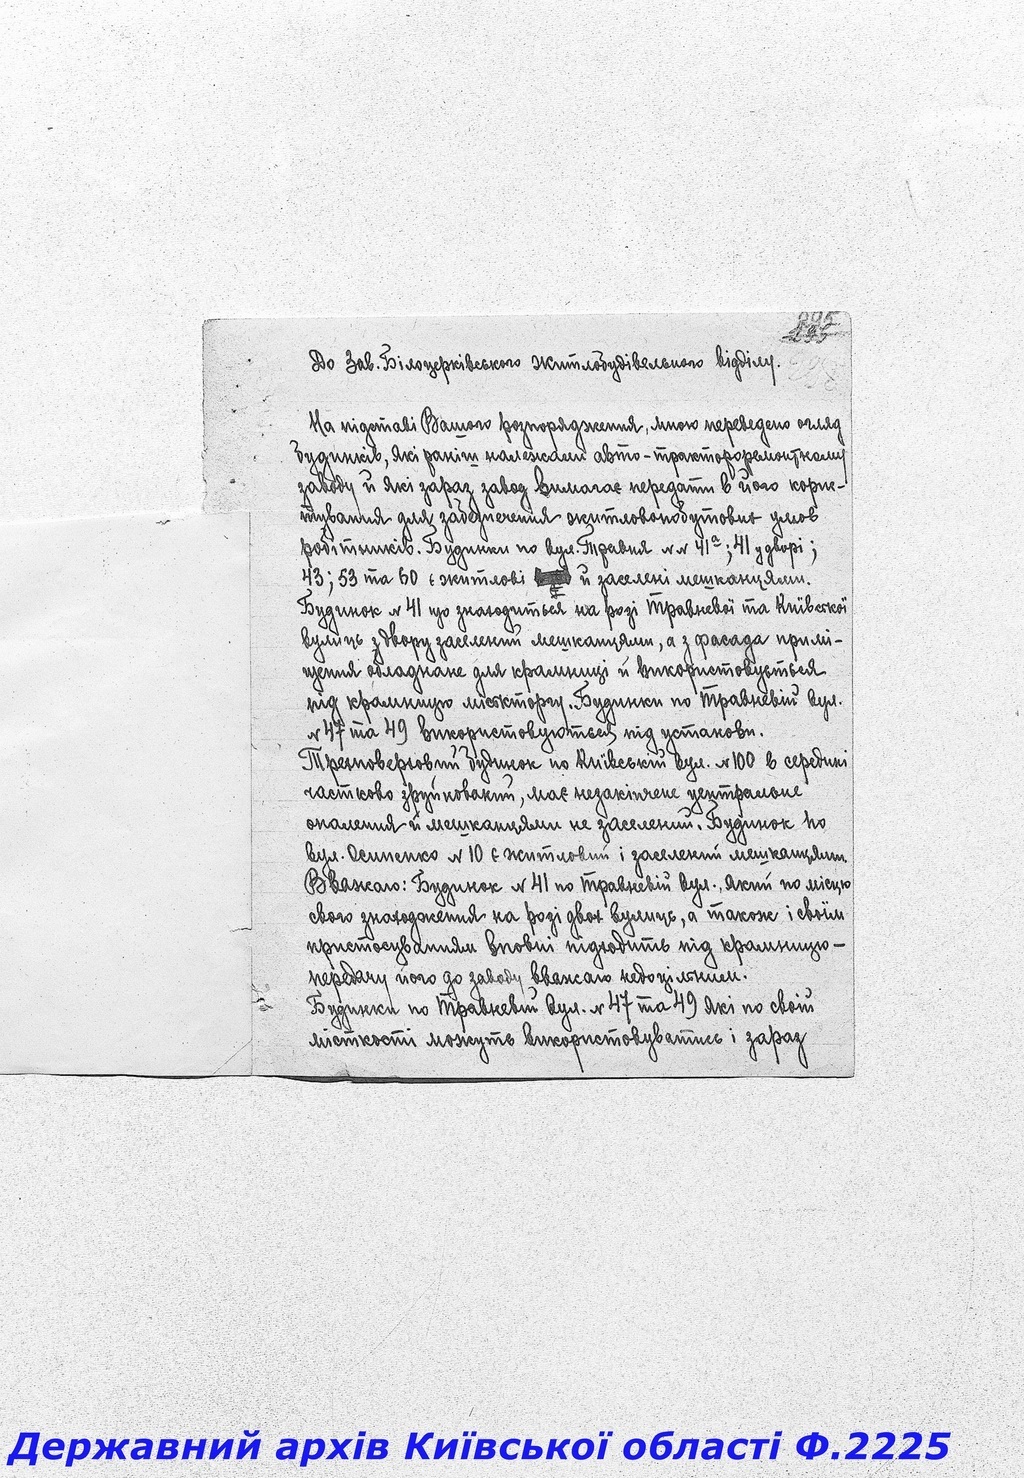 До Зав. Білоцерківського житлобудівельного відділу.
На підставі Вашого розпорядження, мною переведено огляд
будинків, які раніш належали авто-трактороремонтному
заводу й які зараз завод вимагає передати в його корис-
тування для забезпечення житловопобутових умов
робітників. Будинки по вул. Травня № № 41а; 41 у дворі;
43; 53 та 60 є житлові й заселені мешканцями.
Будинок № 41 що знаходиться на розі Травневої та Київської
вулиць з двору заселений мешканцями, а з фасада примі-
щення обладнане для крамниці й використовується
під крамницю місьторгу. Будинки по Травневій вул.
№ 47 та 49 використовуються під установи.
Трехповерховий будинок по Київській вул. № 100 в середині
частково зруйнований, має незакінчене центральне
опалення й мешканцями не заселений. Будинок по
вул. Осипенко № 10 є житловий і заселений мешканцями.
Вважаю: Будинок № 41 по Травневій вул., який по місцю
свого знаходження на розі двох вулиць, а також і своїм
пристосуванням вповні підходить під крамницю –
передачу його до заводу вважаю недоцільним.
Будинки по Травневій вул. № 47 та 49 які по своїй
місткості можуть використовуватись і зараз
Державний архів Київської області Ф.2225